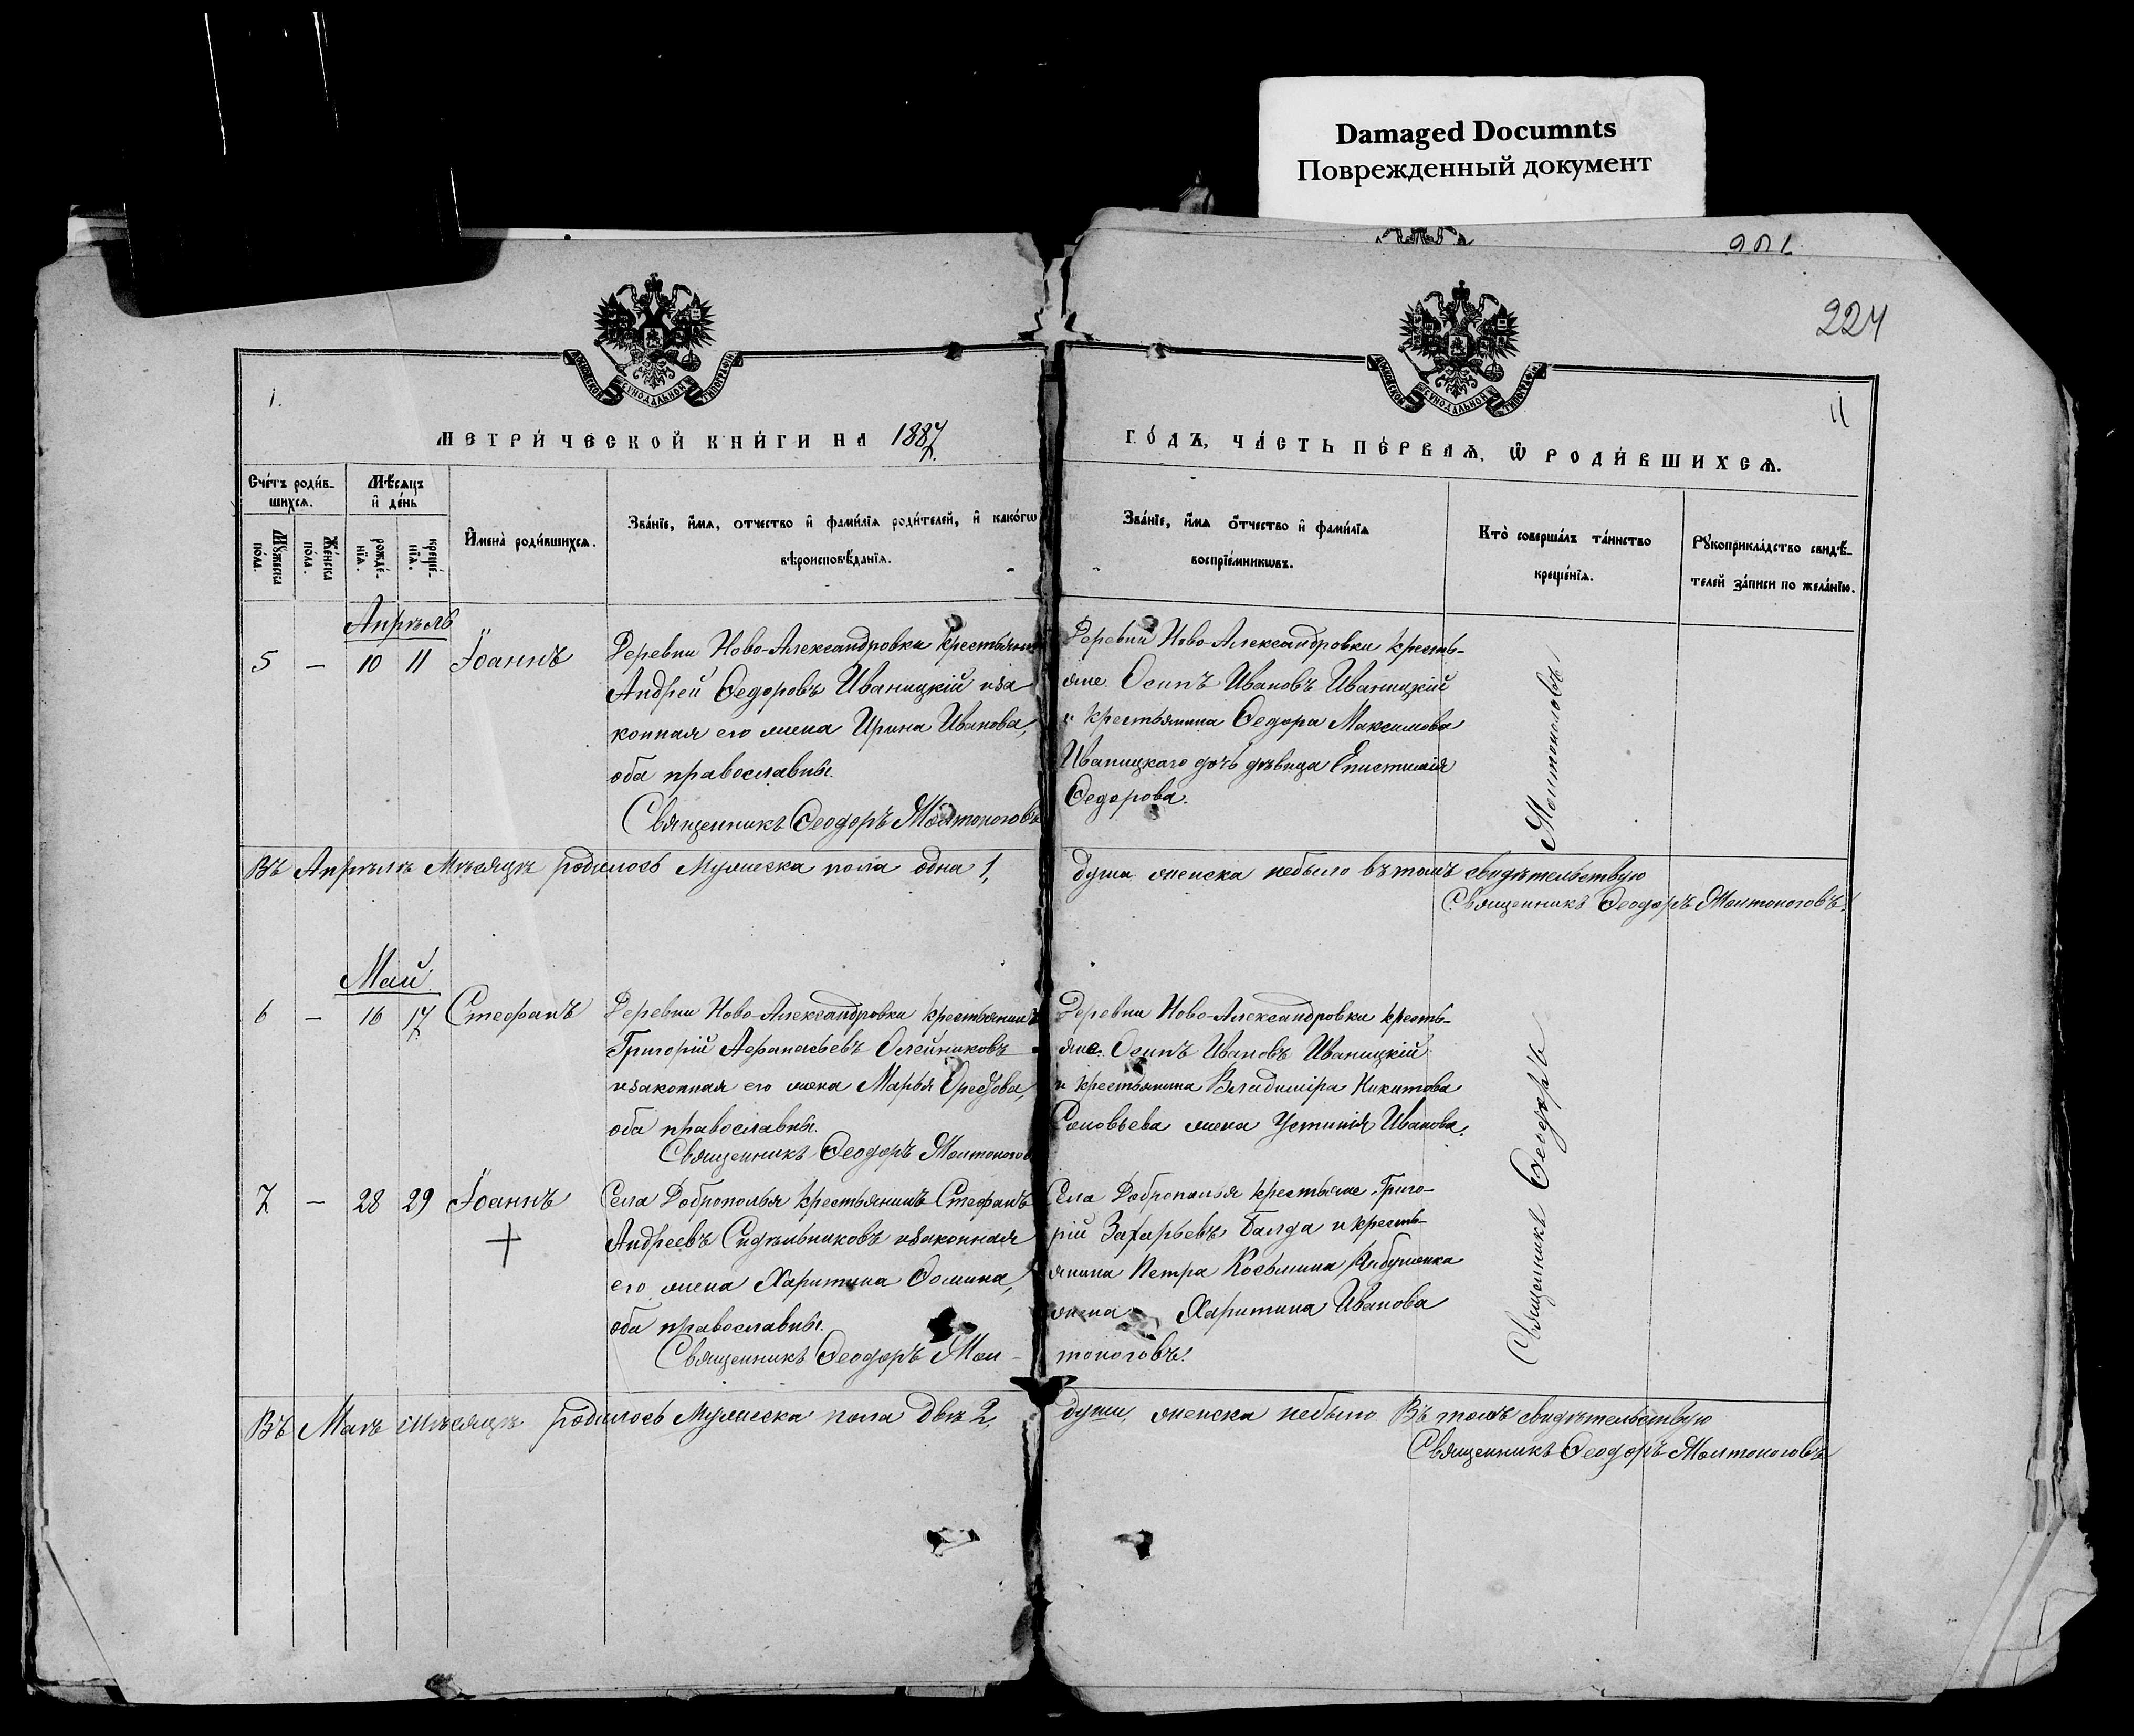 Damaged Documnts
Поврежденный документ
224
МОСКОВСКОЙ СѴНОДАЛЬНОЙ ТИПОГРАФІИ
МОСКОВСКОЙ СѴНОДАЛЬНОЙ ТИПОГРАФІИ
1.
11
МЕТРИ́ЧЕСКОЙ КНИ́ГИ НА 1887
ГО́ДЪ, ЧА́СТЬ ПЕ́РВАѦ, Ѡ҆ РОДИ́ВШИХСѦ.
Сче́тъ роди́в-
шихсѧ.
Мѣ́сѧцъ
и҆ де́нь
Мꙋ́жеска
по́ла.
Же́нска
по́ла.
рожде́-
нїѧ.
креще́-
нїѧ.
И҆мена̀ роди́вшихсѧ.
Зва́нїе, и҆́мѧ, ѻ҆́тчество и҆ фами́лїѧ роди́телей, и҆ како́гѡ
вѣроисповѣ́данїѧ.
Зва́нїе, и҆́мѧ ѻ҆́тчество и҆ фами́лїѧ
воспрїе́мникѡвъ.
Кто̀ соверша́лъ та́инство
креще́нїѧ.
Рꙋкоприкла́дство свидѣ́-
телей за́писи по жела́нїю.
Апрѣль
5 – 10 11 Іоаннъ
Деревни Ново-Александровки крестьянинъ
Андрей Ѳедоровъ Иваницкій иза
конная его жена Ирина Иванова,
оба православны.
Священникъ Ѳеодоръ Молтоноговъ
Деревни Ново-Александровки кресть-
яне. Осипъ Ивановъ Иваницкій
и крестьянина Ѳедора Максимова
Иваницкаго дочь дѣвица Епистимія
Ѳедорова.
Въ Апрѣлѣ Мѣсяцѣ родилось Мужеска пола одна 1,
душа женска небыло въ томъ свидѣтельствую
Священникъ Ѳеодоръ Молтоноговъ.
Май
6 – 16 17 Стефанъ
Деревни Ново-Александровки крестьянинъ
Григорій Афанасьевъ Олейниковъ
изаконная его жена Марья
оба православны.
Священникъ Ѳеодоръ Молтоногов
Деревни Ново-Александровки кресть-
яне. Осипъ Ивановъ Иваницкій
и крестьянина Владиміра Никитова
Соловьева жена Устинія Иванова.
7 – 28 29 Іоаннъ
Села Доброполья крестьянинъ Стефанъ
Андреевъ Сидѣльниковъ изаконная
его жена Харитина Ѳомина,
оба православны.
Священникъ Ѳеодоръ Мол-
Села Доброполья крестьяне Григо-
рій Захарьевъ Балда и кресть-
янина Петра Косьмина
жена Харитина Иванова
тоноговъ.
Священникъ Ѳеодоръ Молтоноговъ
Въ Маѣ мѣсяцѣ родилось Мужеска пола двѣ 2,
души, женска небыло Въ томъ свидѣтельствую
Священникъ Ѳеодоръ Молтоноговъ